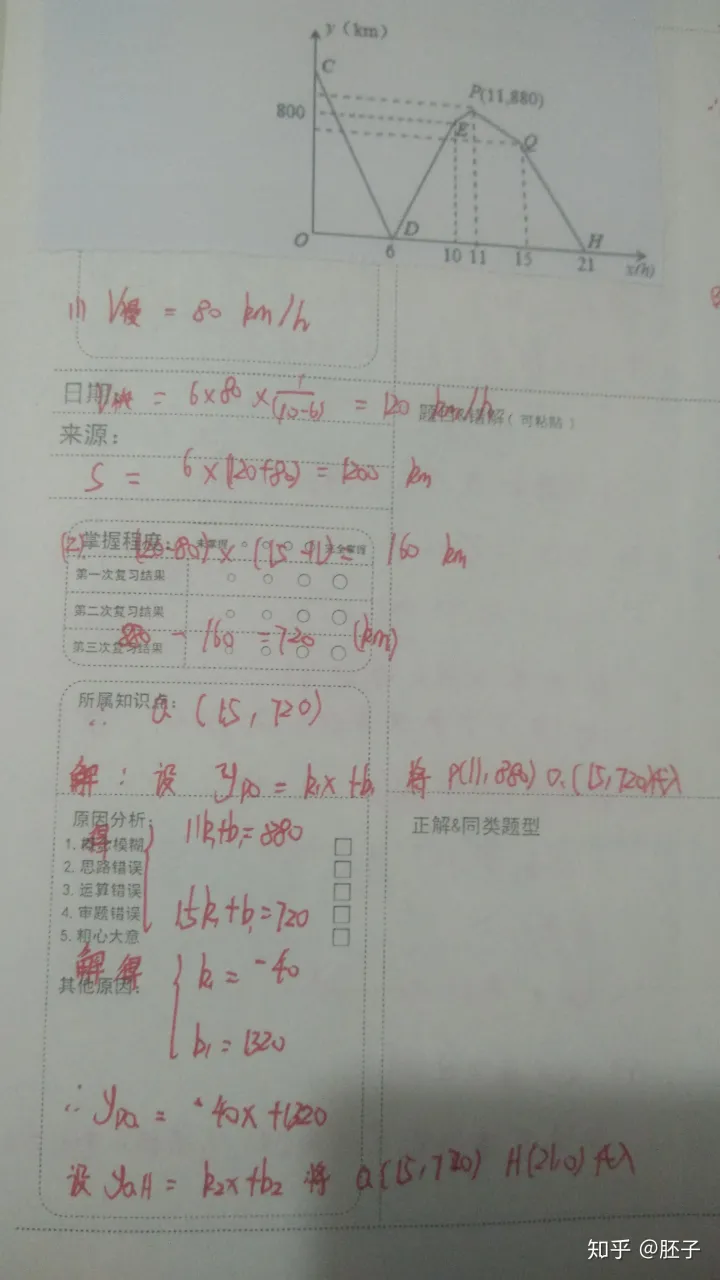 y (km)
C
P(11,880)
800
E
Q
O
D
H
6
10 11
15
21
x(h)
(1) V慢 = 80 km/h
日期:
V快 = 6×80 × 1/(10-6) = 120 km/h
题目&错解(可粘贴)
来源:
S = 6×(120+80) = 1200 km
掌握程度: 未掌握 完全掌握
(2) (120-80)×(15-11)= 160 km
第一次复习结果
第二次复习结果
880 - 160 = 720 (km)
第三次复习结果
所属知识点:
∴ Q (15,720)
解:设 yPQ = k₁x+b₁ 将 P(11,880) Q(15,720)代入
原因分析:
正解&同类题型
得 11k₁+b₁=880
1. 模糊
2. 思路错误
3. 运算错误
4. 审题错误
15k₁+b₁=720
5. 粗心大意
解得 k₁ = -40
其他原因:
b₁ = 1320
∴ yPQ = -40x+1320
设 yQH = k₂x+b₂ 将 Q(15,720) H(21,0)代入
知乎 @胚子